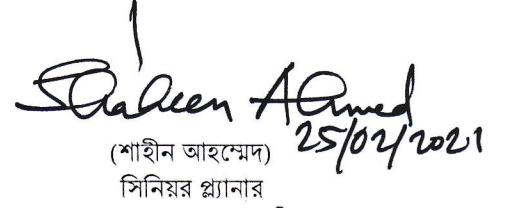 Shaheen Ahmed
25/02/2021
(শাহীন আহম্মেদ)
সিনিয়র প্ল্যানার